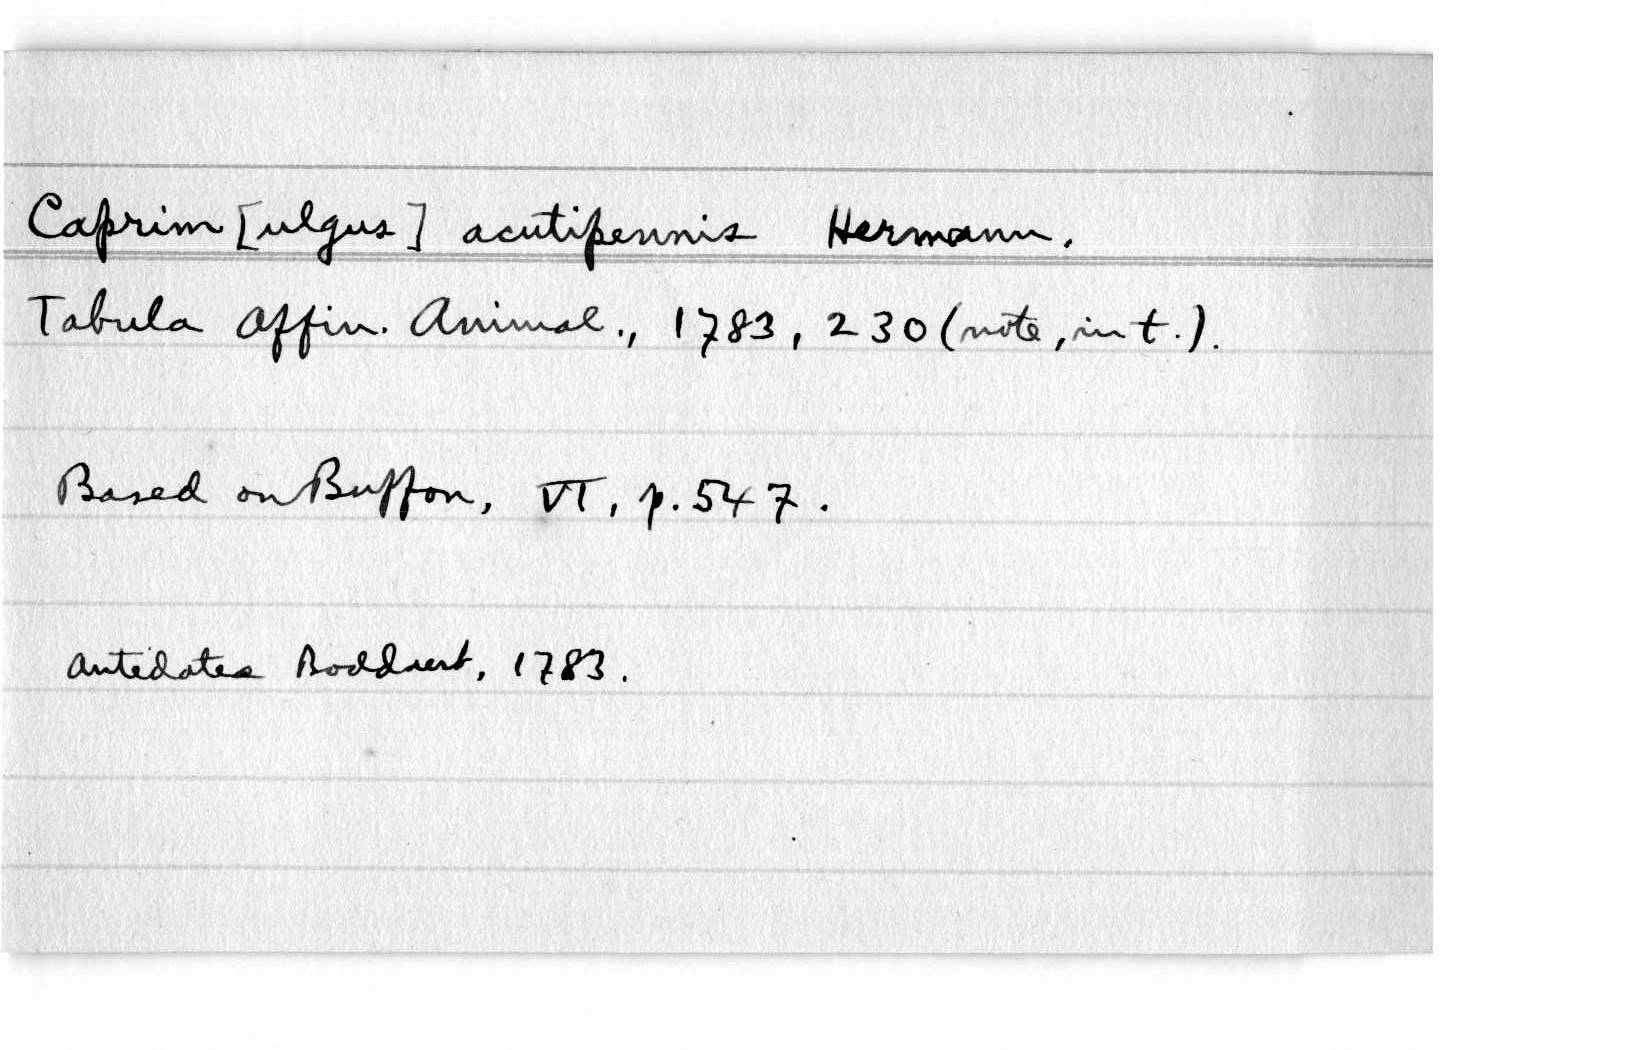 Caprim[ulgus] acutipennis Hermann.
Tabula Affin. Animal., 1783, 230 (note, in t.).
Based on Buffon, VI, p. 547.
Antedates Boddaert, 1783.